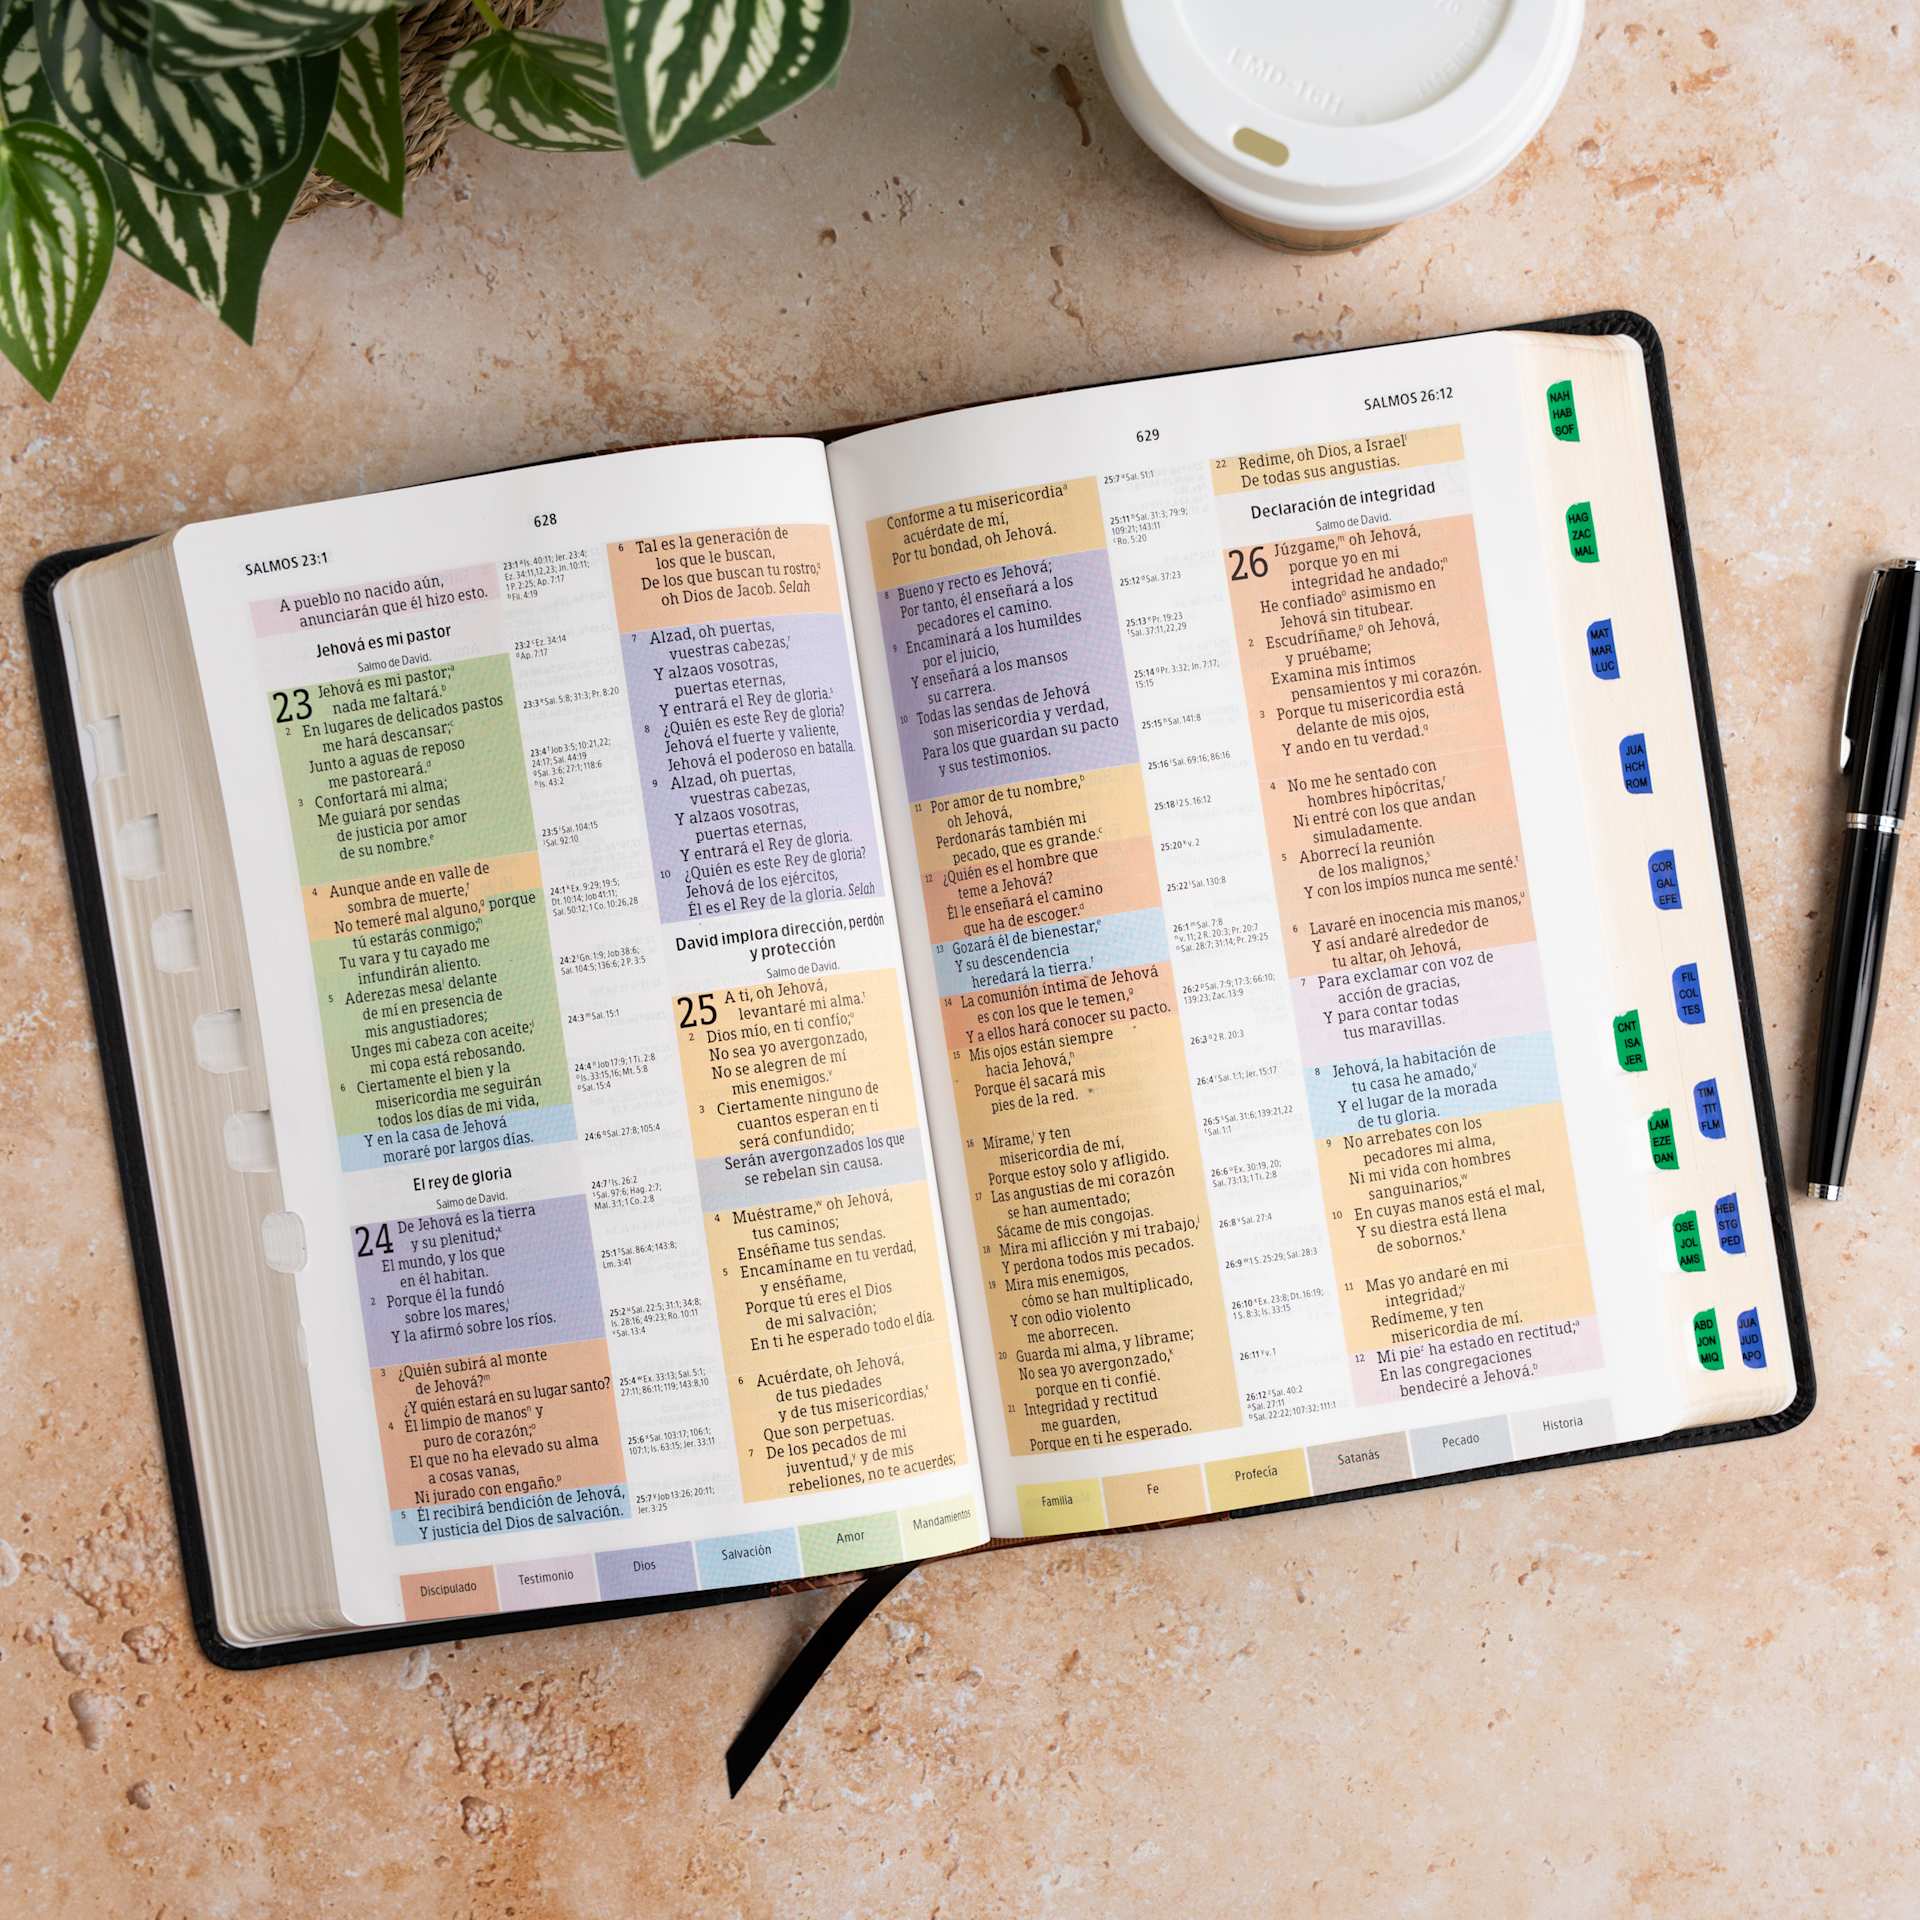 LMD-16H
SALMOS 23:1
628
A pueblo no nacido aún,
anunciarán que él hizo esto.
Jehová es mi pastor
Salmo de David.
23 Jehová es mi pastor;a
nada me faltará.b
2 En lugares de delicados pastos
me hará descansar;c
Junto a aguas de reposo
me pastoreará.d
3 Confortará mi alma;
Me guiará por sendas
de justicia por amor
de su nombre.e
4 Aunque ande en valle de
sombra de muerte,f
No temeré mal alguno,g porque
tú estarás conmigo;h
Tu vara y tu cayado me
infundirán aliento.
5 Aderezas mesai delante
de mí en presencia de
mis angustiadores;
Unges mi cabeza con aceite;j
mi copa está rebosando.
6 Ciertamente el bien y la
misericordia me seguirán
todos los días de mi vida,
Y en la casa de Jehová
moraré por largos días.
El rey de gloria
Salmo de David.
24 De Jehová es la tierra
y su plenitud;k
El mundo, y los que
en él habitan.
2 Porque él la fundó
sobre los mares,l
Y la afirmó sobre los ríos.
3 ¿Quién subirá al monte
de Jehová?m
¿Y quién estará en su lugar santo?
4 El limpio de manosn y
puro de corazón;o
El que no ha elevado su alma
a cosas vanas,
Ni jurado con engaño.p
5 Él recibirá bendición de Jehová,
Y justicia del Dios de salvación.
23:1 a Is. 40:11; Jer. 23:4;
Ez. 34:11,12,23; Jn. 10:11;
1 P. 2:25; Ap. 7:17
b Fil. 4:19
23:2 c Ez. 34:14
d Ap. 7:17
23:3 e Sal. 5:8; 31:3; Pr. 8:20
23:4 f Job 3:5; 10:21,22;
24:17; Sal. 44:19
g Sal. 3:6; 27:1; 118:6
h Is. 43:2
23:5 i Sal. 104:15
j Sal. 92:10
24:1 k Ex. 9:29; 19:5;
Dt. 10:14; Job 41:11;
Sal. 50:12; 1 Co. 10:26,28
24:2 l Gn. 1:9; Job 38:6;
Sal. 104:5; 136:6; 2 P. 3:5
24:3 m Sal. 15:1
24:4 n Job 17:9; 1 Ti. 2:8
o Is. 33:15,16; Mt. 5:8
p Sal. 15:4
24:6 q Sal. 27:8; 105:4
24:7 r Is. 26:2
s Sal. 97:6; Hag. 2:7;
Mal. 3:1; 1 Co. 2:8
25:1 t Sal. 86:4; 143:8;
Lm. 3:41
25:2 u Sal. 22:5; 31:1; 34:8;
Is. 28:16; 49:23; Ro. 10:11
v Sal. 13:4
25:4 w Ex. 33:13; Sal. 5:1;
27:11; 86:11; 119; 143:8,10
25:6 x Sal. 103:17; 106:1;
107:1; Is. 63:15; Jer. 33:11
25:7 y Job 13:26; 20:11;
Jer. 3:25
6 Tal es la generación de
los que le buscan,
De los que buscan tu rostro,q
oh Dios de Jacob. Selah
7 Alzad, oh puertas,
vuestras cabezas,r
Y alzaos vosotras,
puertas eternas,
Y entrará el Rey de gloria.s
8 ¿Quién es este Rey de gloria?
Jehová el fuerte y valiente,
Jehová el poderoso en batalla.
9 Alzad, oh puertas,
vuestras cabezas,
Y alzaos vosotras,
puertas eternas,
Y entrará el Rey de gloria.
10 ¿Quién es este Rey de gloria?
Jehová de los ejércitos,
Él es el Rey de la gloria. Selah
David implora dirección, perdón
y protección
Salmo de David.
25 A ti, oh Jehová,
levantaré mi alma.t
2 Dios mío, en ti confío;u
No sea yo avergonzado,
No se alegren de mí
mis enemigos.v
3 Ciertamente ninguno de
cuantos esperan en ti
será confundido;
Serán avergonzados los que
se rebelan sin causa.
4 Muéstrame,w oh Jehová,
tus caminos;
Enséñame tus sendas.
5 Encamíname en tu verdad,
y enséñame,
Porque tú eres el Dios
de mi salvación;
En ti he esperado todo el día.
6 Acuérdate, oh Jehová,
de tus piedades
y de tus misericordias,x
Que son perpetuas.
7 De los pecados de mi
juventud,y y de mis
rebeliones, no te acuerdes;
Discipulado
Testimonio
Dios
Salvación
Amor
Mandamientos
629
SALMOS 26:12
Conforme a tu misericordiaa
acuérdate de mí,
Por tu bondad, oh Jehová.
8 Bueno y recto es Jehová;
Por tanto, él enseñará a los
pecadores el camino.
9 Encaminará a los humildes
por el juicio,
Y enseñará a los mansos
su carrera.
10 Todas las sendas de Jehová
son misericordia y verdad,
Para los que guardan su pacto
y sus testimonios.
11 Por amor de tu nombre,b
oh Jehová,
Perdonarás también mi
pecado, que es grande.c
12 ¿Quién es el hombre que
teme a Jehová?
Él le enseñará el camino
que ha de escoger.d
13 Gozará él de bienestar,e
Y su descendencia
heredará la tierra.f
14 La comunión íntima de Jehová
es con los que le temen,g
Y a ellos hará conocer su pacto.
15 Mis ojos están siempre
hacia Jehová,h
Porque él sacará mis
pies de la red.
16 Mírame,i y ten
misericordia de mí,
Porque estoy solo y afligido.
17 Las angustias de mi corazón
se han aumentado;
Sácame de mis congojas.
18 Mira mi aflicción y mi trabajo,j
Y perdona todos mis pecados.
19 Mira mis enemigos,
cómo se han multiplicado,
Y con odio violento
me aborrecen.
20 Guarda mi alma, y líbrame;
No sea yo avergonzado,k
porque en ti confié.
21 Integridad y rectitud
me guarden,
Porque en ti he esperado.
25:7 a Sal. 51:1
25:11 b Sal. 31:3; 79:9;
109:21; 143:11
c Ro. 5:20
25:12 d Sal. 37:23
25:13 e Pr. 19:23
f Sal. 37:11,22,29
25:14 g Pr. 3:32; Jn. 7:17;
15:15
25:15 h Sal. 141:8
25:16 i Sal. 69:16; 86:16
25:18 j 2 S. 16:12
25:20 k v. 2
25:22 l Sal. 130:8
26:1 m Sal. 7:8
n v. 11; 2 R. 20:3; Pr. 20:7
o Sal. 28:7; 31:14; Pr. 29:25
26:2 p Sal. 7:9; 17:3; 66:10;
139:23; Zac. 13:9
26:3 q 2 R. 20:3
26:4 r Sal. 1:1; Jer. 15:17
26:5 s Sal. 31:6; 139:21,22
t Sal. 1:1
26:6 u Ex. 30:19,20;
Sal. 73:13; 1 Ti. 2:8
26:8 v Sal. 27:4
26:9 w 1 S. 25:29; Sal. 28:3
26:10 x Ex. 23:8; Dt. 16:19;
1 S. 8:3; Is. 33:15
26:11 y v. 1
26:12 z Sal. 40:2
a Sal. 27:11
b Sal. 22:22; 107:32; 111:1
22 Redime, oh Dios, a Israell
De todas sus angustias.
Declaración de integridad
Salmo de David.
26 Júzgame,m oh Jehová,
porque yo en mi
integridad he andado;n
He confiadoo asimismo en
Jehová sin titubear.
2 Escudríñame,p oh Jehová,
y pruébame;
Examina mis íntimos
pensamientos y mi corazón.
3 Porque tu misericordia está
delante de mis ojos,
Y ando en tu verdad.q
4 No me he sentado con
hombres hipócritas,r
Ni entré con los que andan
simuladamente.
5 Aborrecí la reunión
de los malignos,s
Y con los impíos nunca me senté.t
6 Lavaré en inocencia mis manos,u
Y así andaré alrededor de
tu altar, oh Jehová,
7 Para exclamar con voz de
acción de gracias,
Y para contar todas
tus maravillas.
8 Jehová, la habitación de
tu casa he amado,v
Y el lugar de la morada
de tu gloria.
9 No arrebates con los
pecadores mi alma,
Ni mi vida con hombres
sanguinarios,w
10 En cuyas manos está el mal,
Y su diestra está llena
de sobornos.x
11 Mas yo andaré en mi
integridad;y
Redímeme, y ten
misericordia de mí.
12 Mi piez ha estado en rectitud;a
En las congregaciones
bendeciré a Jehová.b
Familia
Fe
Profecía
Satanás
Pecado
Historia
NAH
HAB
SOF
HAG
ZAC
MAL
MAT
MAR
LUC
JUA
HCH
ROM
COR
GAL
EFE
FIL
COL
TES
CNT
ISA
JER
TIM
TIT
FLM
LAM
EZE
DAN
HEB
STG
PED
OSE
JOL
AMS
ABD
JON
MIQ
JUA
JUD
APO